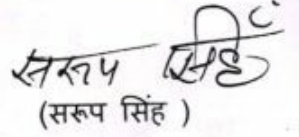 सरुप सिंह
(सरूप सिंह )